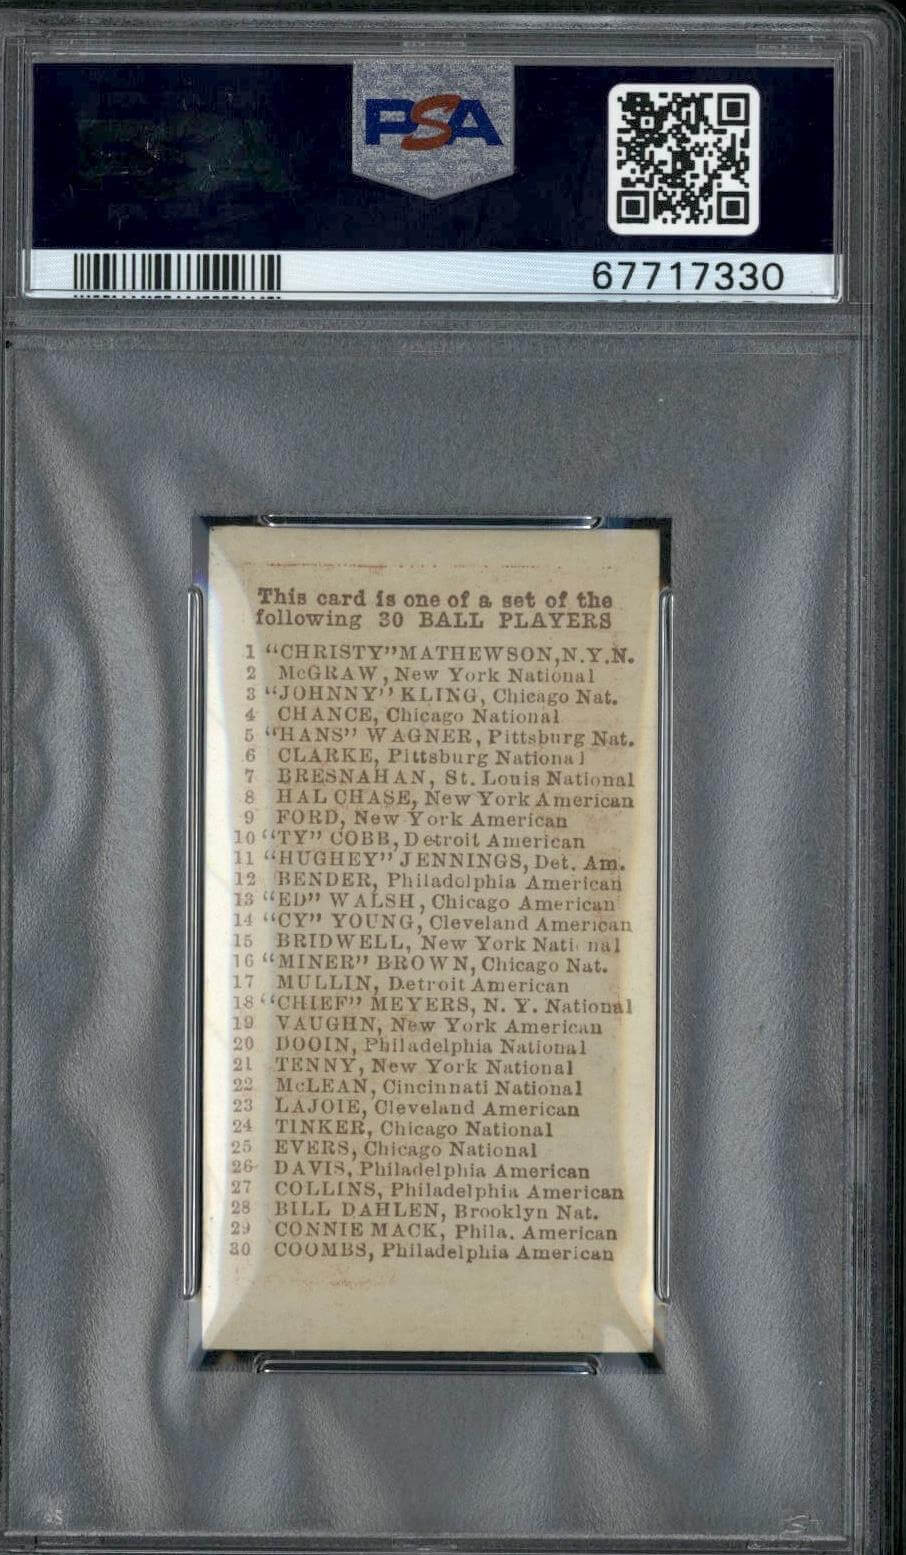 PSA
67717330
This card is one of a set of the
following 30 BALL PLAYERS
1 "CHRISTY" MATHEWSON, N.Y.N.
2 McGRAW, New York National
3 "JOHNNY" KLING, Chicago Nat.
4 CHANCE, Chicago National
5 "HANS" WAGNER, Pittsburg Nat.
6 CLARKE, Pittsburg National
7 BRESNAHAN, St. Louis National
8 HAL CHASE, New York American
9 FORD, New York American
10 "TY" COBB, Detroit American
11 "HUGHEY" JENNINGS, Det. Am.
12 BENDER, Philadelphia American
13 "ED" WALSH, Chicago American
14 "CY" YOUNG, Cleveland American
15 BRIDWELL, New York National
16 "MINER" BROWN, Chicago Nat.
17 MULLIN, Detroit American
18 "CHIEF" MEYERS, N. Y. National
19 VAUGHN, New York American
20 DOOIN, Philadelphia National
21 TENNY, New York National
22 McLEAN, Cincinnati National
23 LAJOIE, Cleveland American
24 TINKER, Chicago National
25 EVERS, Chicago National
26 DAVIS, Philadelphia American
27 COLLINS, Philadelphia American
28 BILL DAHLEN, Brooklyn Nat.
29 CONNIE MACK, Phila. American
30 COOMBS, Philadelphia American